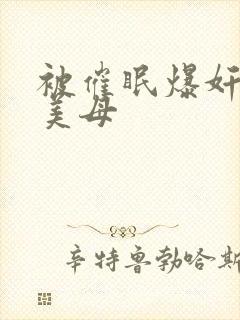 被催眠爆奸
美母
辛特鲁勃哈斯